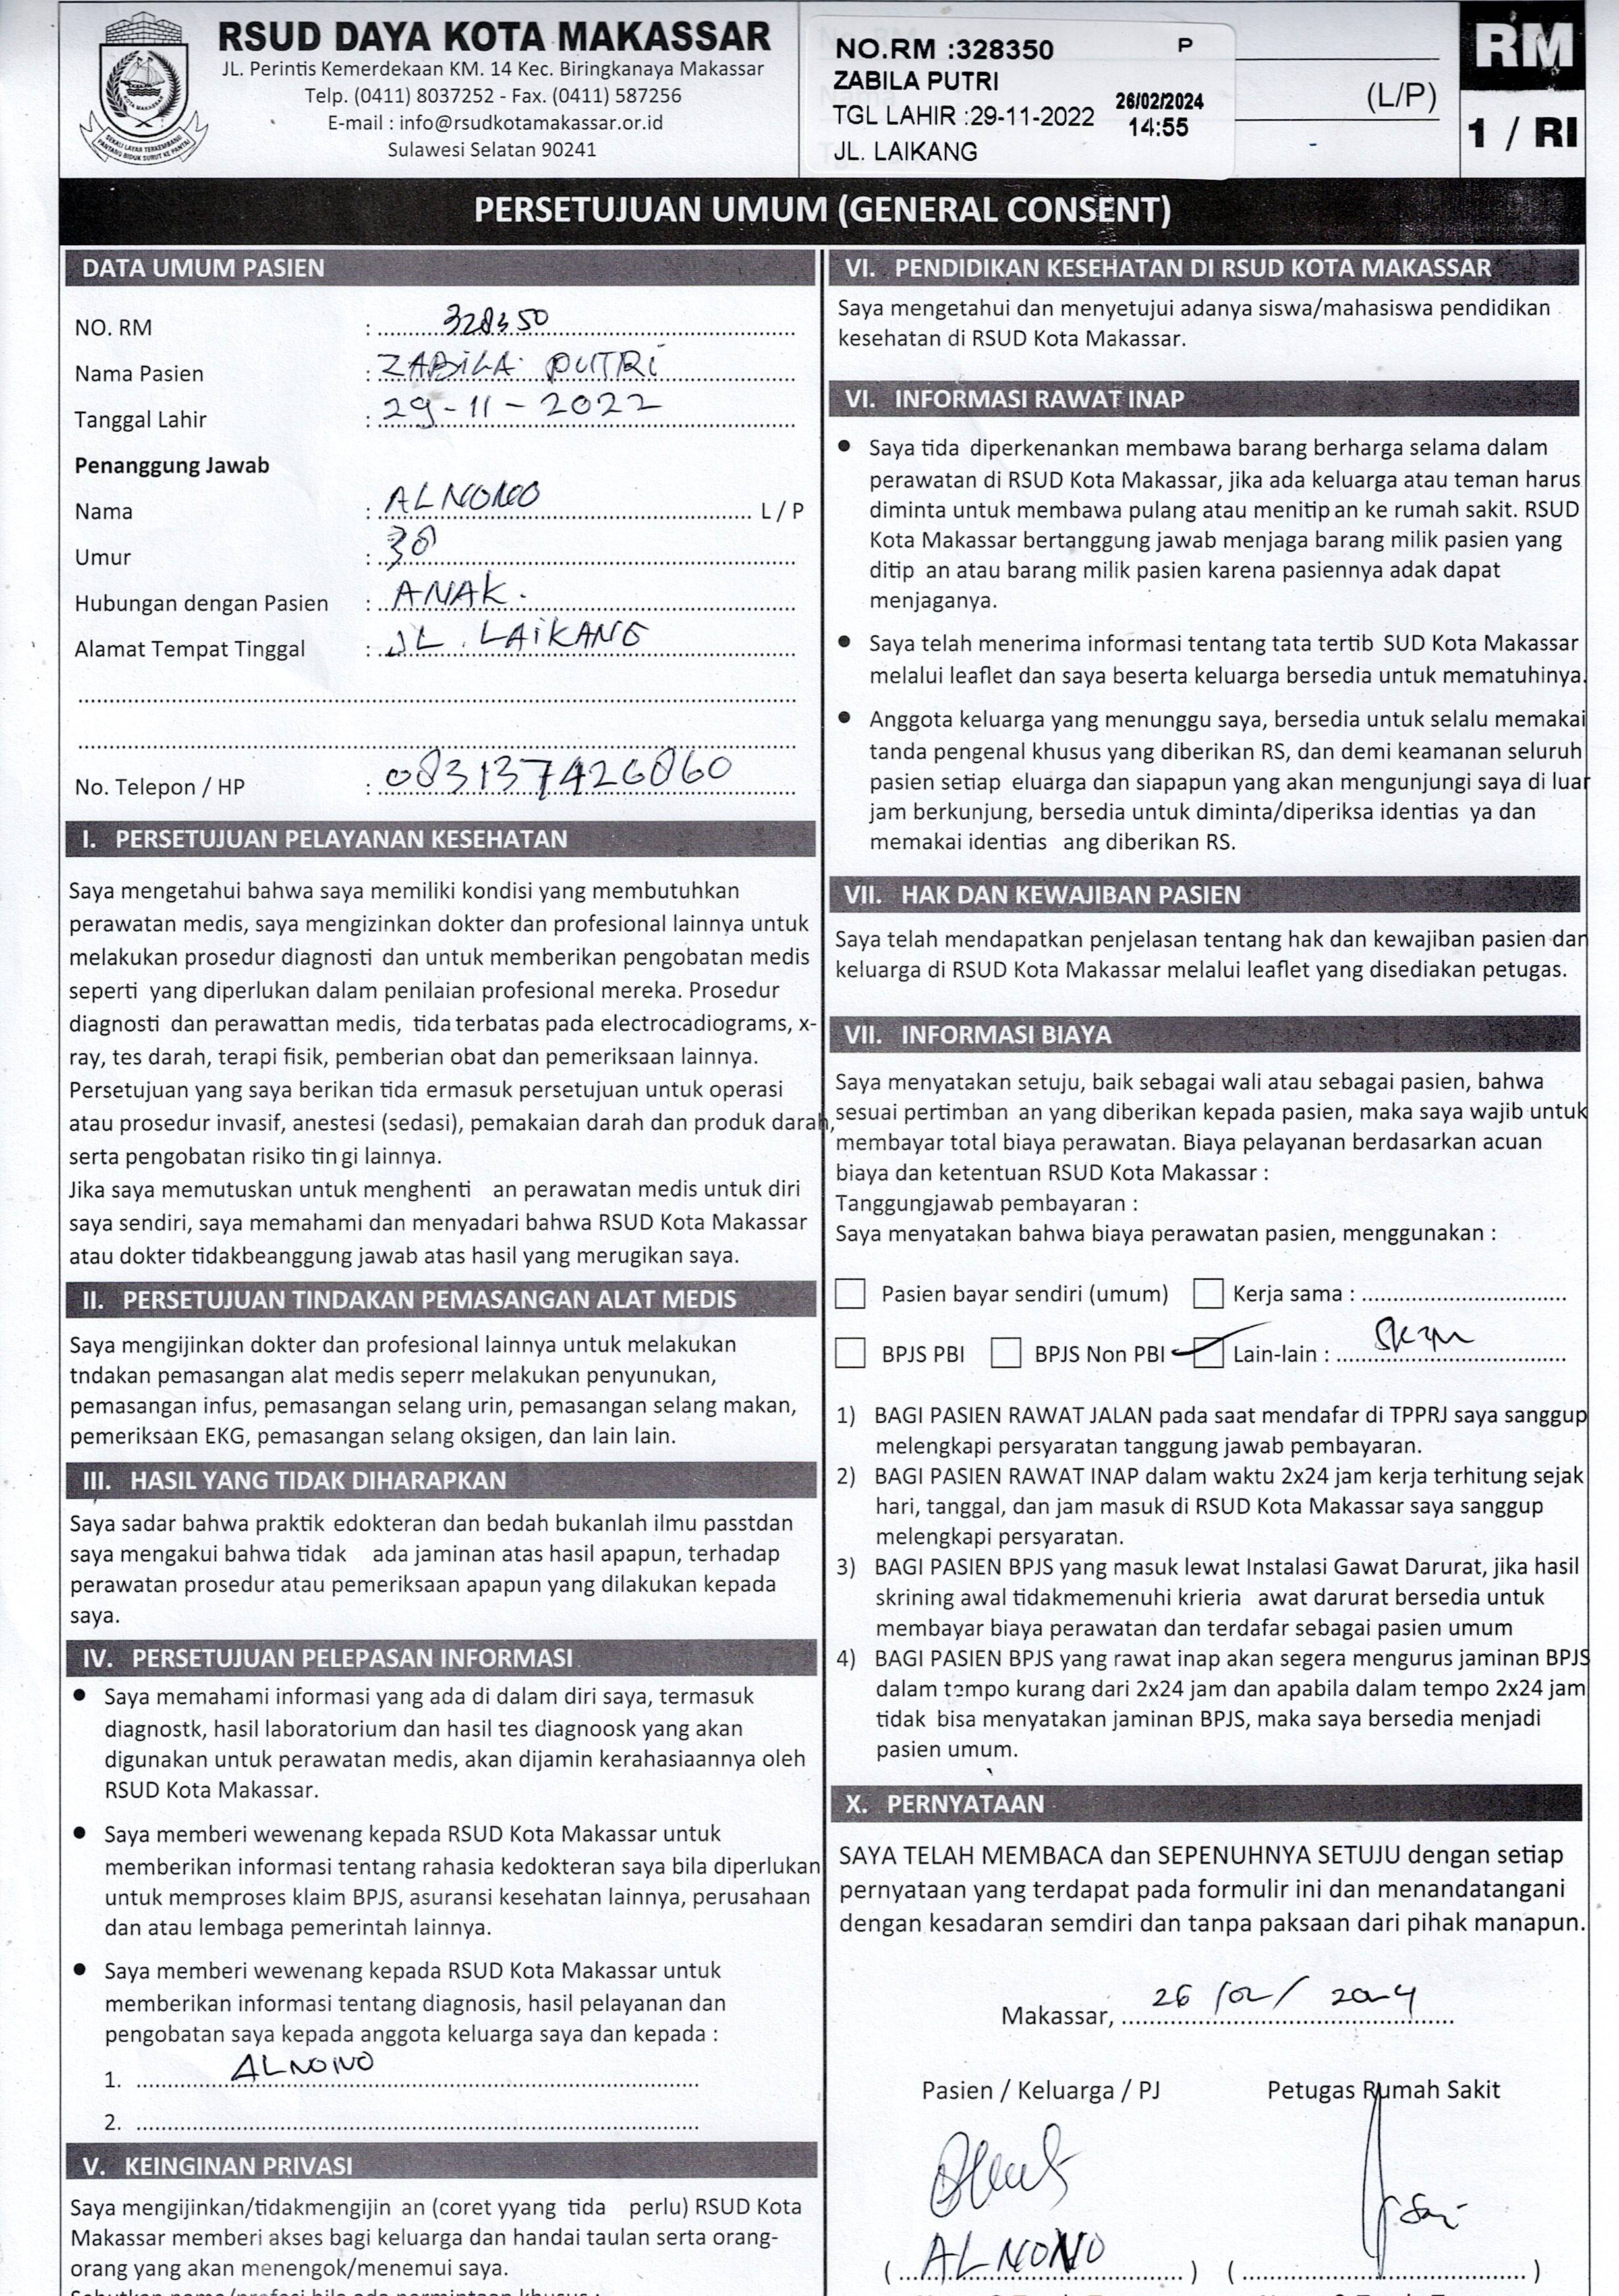 RSUD DAYA KOTA MAKASSAR
JL. Perintis Kemerdekaan KM. 14 Kec. Biringkanaya Makassar
Telp. (0411) 8037252 - Fax. (0411) 587256
E-mail : info@rsudkotamakassar.or.id
Sulawesi Selatan 90241
NO.RM :328350 P
ZABILA PUTRI
TGL LAHIR :29-11-2022
26/02/2024
14:55
JL. LAIKANG
(L/P)
RM
1 / RI
PERSETUJUAN UMUM (GENERAL CONSENT)
DATA UMUM PASIEN
NO. RM : 328350
Nama Pasien : ZABILA PUTRI
Tanggal Lahir : 29-11-2022
Penanggung Jawab
Nama : ALNONO L / P
Umur : 38
Hubungan dengan Pasien : ANAK.
Alamat Tempat Tinggal : JL. LAIKANG
No. Telepon / HP : 083137426860
I. PERSETUJUAN PELAYANAN KESEHATAN
Saya mengetahui bahwa saya memiliki kondisi yang membutuhkan
perawatan medis, saya mengizinkan dokter dan profesional lainnya untuk
melakukan prosedur diagnosti dan untuk memberikan pengobatan medis
seperti yang diperlukan dalam penilaian profesional mereka. Prosedur
diagnosti dan perawattan medis, tida terbatas pada electrocadiograms, x-
ray, tes darah, terapi fisik, pemberian obat dan pemeriksaan lainnya.
Persetujuan yang saya berikan tida ermasuk persetujuan untuk operasi
atau prosedur invasif, anestesi (sedasi), pemakaian darah dan produk darah,
serta pengobatan risiko tin gi lainnya.
Jika saya memutuskan untuk menghenti an perawatan medis untuk diri
saya sendiri, saya memahami dan menyadari bahwa RSUD Kota Makassar
atau dokter tidakbeanggung jawab atas hasil yang merugikan saya.
II. PERSETUJUAN TINDAKAN PEMASANGAN ALAT MEDIS
Saya mengijinkan dokter dan profesional lainnya untuk melakukan
tndakan pemasangan alat medis seperr melakukan penyunukan,
pemasangan infus, pemasangan selang urin, pemasangan selang makan,
pemeriksaan EKG, pemasangan selang oksigen, dan lain lain.
III. HASIL YANG TIDAK DIHARAPKAN
Saya sadar bahwa praktik edokteran dan bedah bukanlah ilmu passtdan
saya mengakui bahwa tidak ada jaminan atas hasil apapun, terhadap
perawatan prosedur atau pemeriksaan apapun yang dilakukan kepada
saya.
IV. PERSETUJUAN PELEPASAN INFORMASI
• Saya memahami informasi yang ada di dalam diri saya, termasuk
diagnostk, hasil laboratorium dan hasil tes diagnoosk yang akan
digunakan untuk perawatan medis, akan dijamin kerahasiaannya oleh
RSUD Kota Makassar.
• Saya memberi wewenang kepada RSUD Kota Makassar untuk
memberikan informasi tentang rahasia kedokteran saya bila diperlukan
untuk memproses klaim BPJS, asuransi kesehatan lainnya, perusahaan
dan atau lembaga pemerintah lainnya.
• Saya memberi wewenang kepada RSUD Kota Makassar untuk
memberikan informasi tentang diagnosis, hasil pelayanan dan
pengobatan saya kepada anggota keluarga saya dan kepada :
1. ALNONO
2.
V. KEINGINAN PRIVASI
Saya mengijinkan/tidakmengijin an (coret yyang tida perlu) RSUD Kota
Makassar memberi akses bagi keluarga dan handai taulan serta orang-
orang yang akan menengok/menemui saya.
VI. PENDIDIKAN KESEHATAN DI RSUD KOTA MAKASSAR
Saya mengetahui dan menyetujui adanya siswa/mahasiswa pendidikan
kesehatan di RSUD Kota Makassar.
VI. INFORMASI RAWAT INAP
• Saya tida diperkenankan membawa barang berharga selama dalam
perawatan di RSUD Kota Makassar, jika ada keluarga atau teman harus
diminta untuk membawa pulang atau menitip an ke rumah sakit. RSUD
Kota Makassar bertanggung jawab menjaga barang milik pasien yang
ditip an atau barang milik pasien karena pasiennya adak dapat
menjaganya.
• Saya telah menerima informasi tentang tata tertib SUD Kota Makassar
melalui leaflet dan saya beserta keluarga bersedia untuk mematuhinya.
• Anggota keluarga yang menunggu saya, bersedia untuk selalu memakai
tanda pengenal khusus yang diberikan RS, dan demi keamanan seluruh
pasien setiap eluarga dan siapapun yang akan mengunjungi saya di luar
jam berkunjung, bersedia untuk diminta/diperiksa identias ya dan
memakai identias ang diberikan RS.
VII. HAK DAN KEWAJIBAN PASIEN
Saya telah mendapatkan penjelasan tentang hak dan kewajiban pasien dan
keluarga di RSUD Kota Makassar melalui leaflet yang disediakan petugas.
VII. INFORMASI BIAYA
Saya menyatakan setuju, baik sebagai wali atau sebagai pasien, bahwa
sesuai pertimban an yang diberikan kepada pasien, maka saya wajib untuk
membayar total biaya perawatan. Biaya pelayanan berdasarkan acuan
biaya dan ketentuan RSUD Kota Makassar :
Tanggungjawab pembayaran :
Saya menyatakan bahwa biaya perawatan pasien, menggunakan :
Pasien bayar sendiri (umum) Kerja sama :
BPJS PBI BPJS Non PBI Lain-lain :
1) BAGI PASIEN RAWAT JALAN pada saat mendafar di TPPRJ saya sanggup
melengkapi persyaratan tanggung jawab pembayaran.
2) BAGI PASIEN RAWAT INAP dalam waktu 2x24 jam kerja terhitung sejak
hari, tanggal, dan jam masuk di RSUD Kota Makassar saya sanggup
melengkapi persyaratan.
3) BAGI PASIEN BPJS yang masuk lewat Instalasi Gawat Darurat, jika hasil
skrining awal tidakmemenuhi krieria awat darurat bersedia untuk
membayar biaya perawatan dan terdafar sebagai pasien umum
4) BAGI PASIEN BPJS yang rawat inap akan segera mengurus jaminan BPJS
dalam tempo kurang dari 2x24 jam dan apabila dalam tempo 2x24 jam
tidak bisa menyatakan jaminan BPJS, maka saya bersedia menjadi
pasien umum.
X. PERNYATAAN
SAYA TELAH MEMBACA dan SEPENUHNYA SETUJU dengan setiap
pernyataan yang terdapat pada formulir ini dan menandatangani
dengan kesadaran semdiri dan tanpa paksaan dari pihak manapun.
Makassar, 26/02/2024
Pasien / Keluarga / PJ Petugas Rumah Sakit
( ALNONO ) ( )